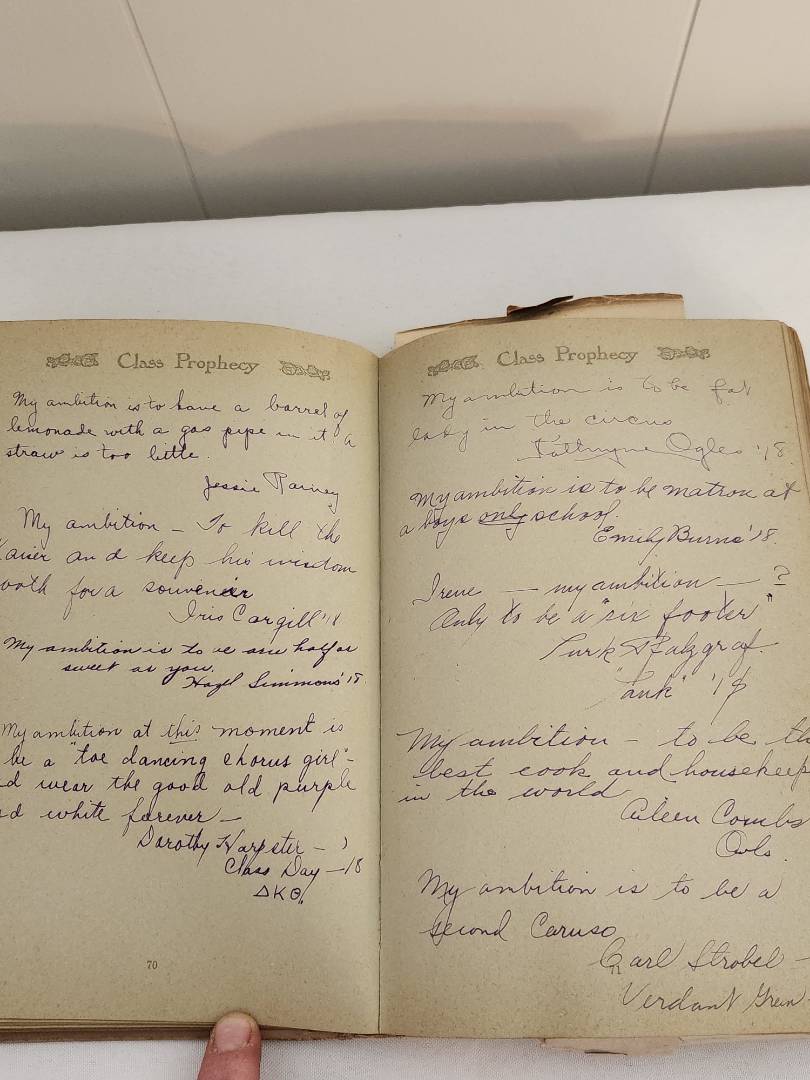 Class Prophecy
My ambition is to have a barrel of
lemonade with a gas pipe in it a
straw is too little.
Jessie Rainey
My ambition – To kill the
Kaiser and keep his wisdom
tooth for a souvenier
Iris Cargill '18
My ambition is to be one half as
sweet as you.
Hazel Simmons '18
My ambition at this moment is
be a "toe dancing chorus girl" –
d wear the good old purple
d white forever –
Dorothy Harpster –
Class Day – 18
ΔKΘ
70
Class Prophecy
My ambition is to be fat
lady in the circus
Kathryne Ogles '18.
My ambition is to be matron at
a boys only school.
Emily Burns '18.
Irene — my ambition — ?
Only to be a "six footer"
Pfalzgraf.
"Tank" '18
My ambition – to be th
best cook and housekeep
in the world
Aileen Combs
Owls.
My ambition is to be a
second Caruso
Carl Strobel –
Verdant Green